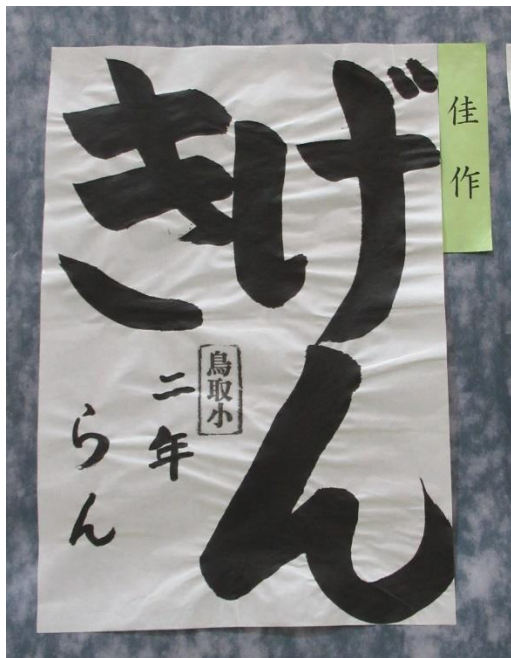 佳作
げん
き
鳥取小
二年
らん